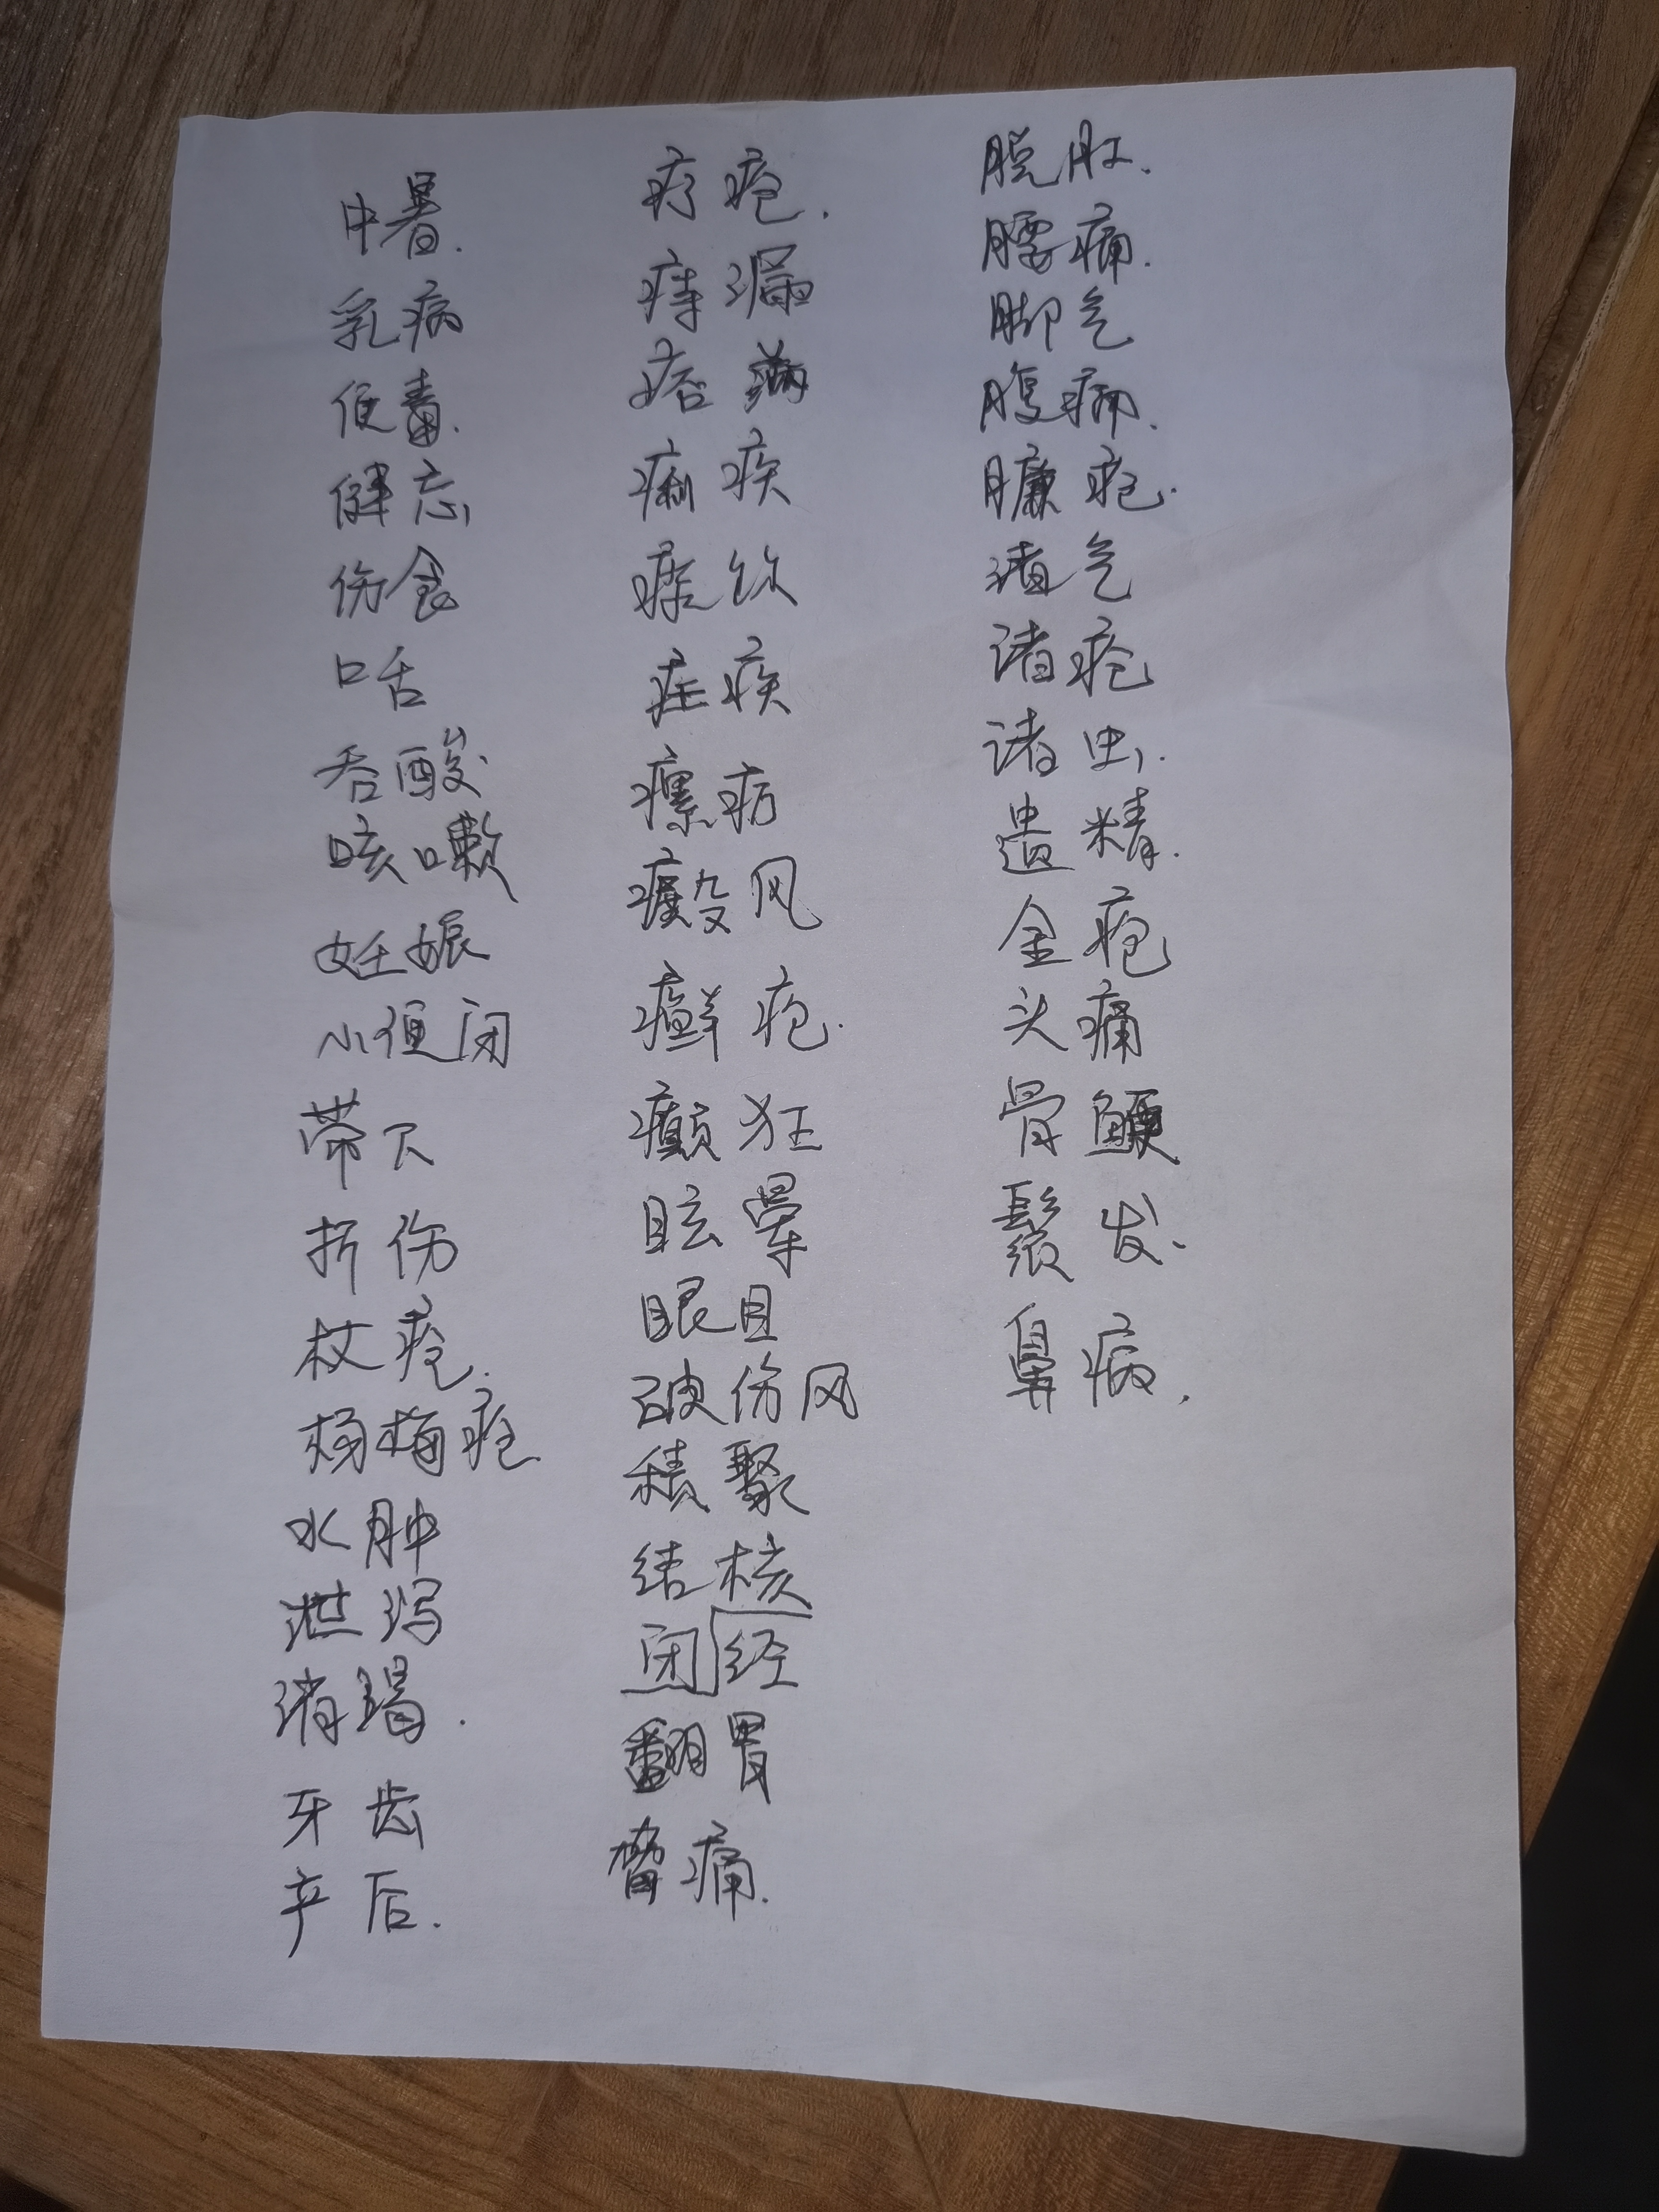 中暑.
乳病
便毒.
健忘
伤食
口舌
吞酸
咳嗽
妊娠
小便闭
带下
折伤
杖疮.
杨梅疮
水肿
泄泻
消渴.
牙齿
产后.
疔疮.
痔漏
痞满
痢疾
痰饮
疟疾
瘰疬
癜风
癣疮.
癫狂
眩晕
眼目
破伤风
积聚
结核
闭经
翻胃
胁痛.
脱肛.
腰痛.
脚气
腹痛.
臁疮.
诸气
诸疮
诸虫.
遗精.
金疮
头痛
骨鲠
鬚发.
鼻病.